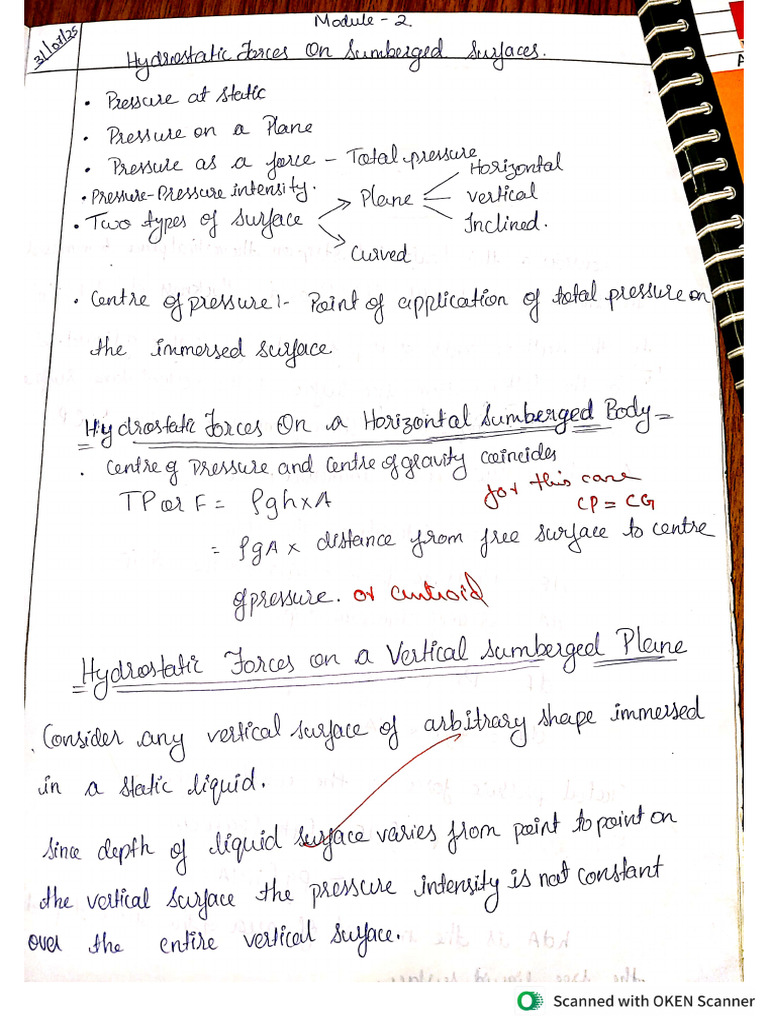 Module - 2
31/07/25
Hydrostatic Forces On Sumberged Surfaces.
• Pressure at static
• Pressure on a Plane
• Pressure as a force - Total pressure
• Pressure-Pressure intensity.
• Two types of surface
Plane
Horizontal
vertical
Inclined.
Curved
• Centre of pressure :- Point of application of total pressure on
the immersed surface.
Hydrostatic Forces On a Horizontal Sumberged Body
• Centre of Pressure and Centre of gravity coincides
TP or F = ρgh x A
for this case
CP = CG
= ρgA x distance from free surface to centre
of pressure. or centroid
Hydrostatic Forces on a Vertical sumberged Plane
. Consider any vertical surface of arbitrary shape immersed
in a static liquid.
Since depth of liquid surface varies from point to point on
the vertical surface the pressure intensity is not constant
over the entire vertical surface.
Scanned with OKEN Scanner